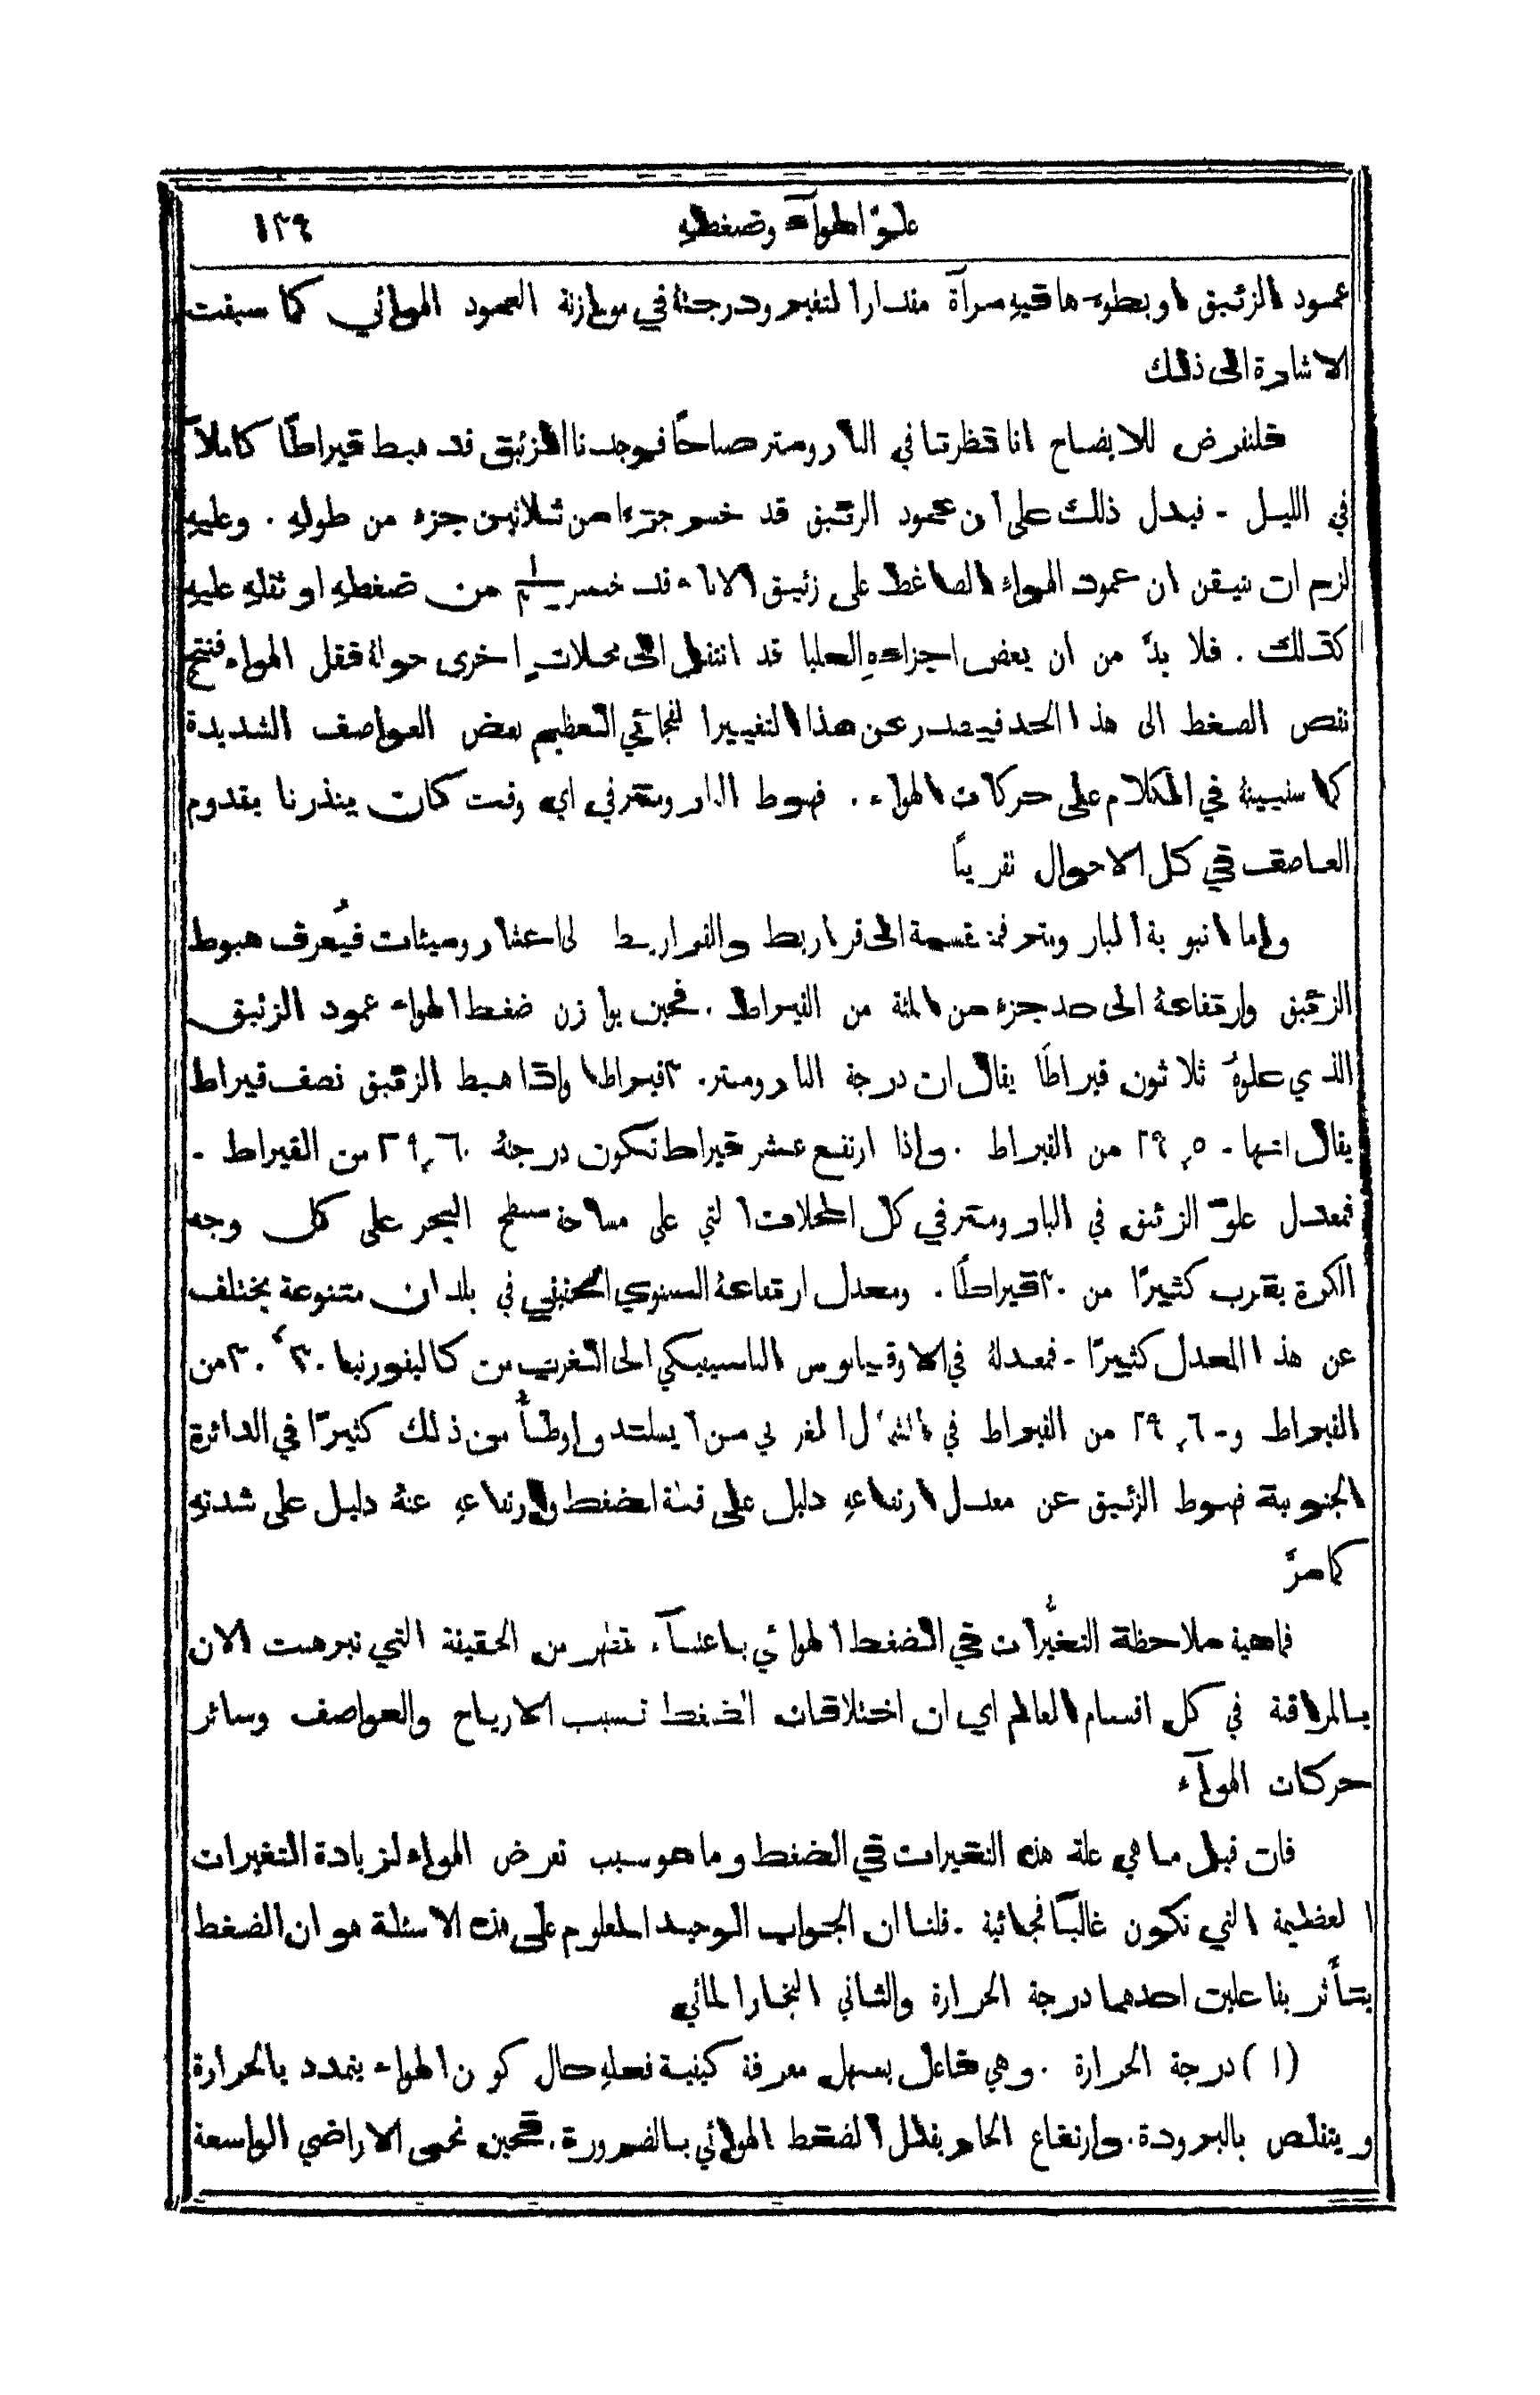 علوّ الهوآء وضغطهِ ١٣٩
عمود الزئبق او بطوء هاقيهِ مرآة مقدارا لتغيير ودرجتهُ في موازنة العمود الهوائي كما سبقت
الاشارة الى ذلك
فلنفرض للايضاح اننا نظرنا في البارومتر صباحًا فوجدنا الزئبق قد هبط قيراطًا كاملاً
في الليل - فيدل ذلك على ان عمود الزئبق قد خسر جزءا من ثلاثين جزء من طولهِ . وعليهِ
لزم ان نتيقن ان عمود الهواء الضاغط على زئبق الاناء قد خسر ١/٣٠ من ضغطهِ او ثقلهِ عليهِ
كذلك . فلا بدَّ من ان بعض اجزائهِ العليا قد انتقل الى محلات اخرى حولهُ فقل الهواء فنتج
نقص الضغط الى هذا الحد فيصدر عن هذا التغيير الفجائي العظيم بعض العواصف الشديدة
كما سنبينهُ في الكلام على حركات الهواء . فهبوط البارومتر في اي وقت كان ينذرنا بقدوم
العاصف في كل الاحوال تقريبًا
واما انبوبة البارومتر فمنقسمة الى قراريط والقراريط الى اعشار ومئات فيُعرف هبوط
الزئبق وارتفاعهُ الى حد جزء من المئة من القيراط . فحين يوازن ضغط الهواء عمود الزئبق
الذي علوهُ ثلاثون قيراطًا يقال ان درجة البارومتر ٣٠ قيراطا واذا هبط الزئبق نصف قيراط
يقال انها - ٢٩٫٥ من القيراط . واذا ارتفع عشر قيراط تكون درجتهُ ٢٩٫٦٠ من القيراط -
فمعدل علوّ الزئبق في البارومتر في كل المحلات التي على مساحة سطح البحر على كل وجه
الكرة يقرب كثيرًا من ٣٠ قيراطًا . ومعدل ارتفاعهُ السنوي الحقيقي في بلدان متنوعة يختلف
عن هذا المعدل كثيرًا - فمعدلهُ في الاوقيانوس الباسيفيكي الى الغرب من كاليفورنيا ٣٠٫٣٠ من
القيراط و- ٢٩٫٦ من القيراط في الشمال الغربي من ايسلند واوطأ من ذلك كثيرًا في الدائرة
الجنوبية فهبوط الزئبق عن معدل ارتفاعهِ دليل على قلة الضغط وارتفاعهِ عنهُ دليل على شدتهِ
كما مرَّ
فاهمية ملاحظة التغيُّرات في الضغط الهوائي باعتنآء تظهر من الحقيقة التي تبرهنت الان
بالمراقبة في كل اقسام العالم اي ان اختلافات الضغط تسبب الارياح والعواصف وسائر
حركات الهوآء
فان قيل ما هي علة هذه التغيرات في الضغط وما هو سبب تعرض الهواء لزيادة التغيرات
العظيمة التي تكون غالبًا فجائية - قلنا ان الجواب الوحيد المعلوم على هذه الاسئلة هو ان الضغط
يتأثر بفاعلين احدهما درجة الحرارة والثاني البخار المائي
(١) درجة الحرارة . وهي فاعل يسهل معرفة كيفية فعلهِ حال كون الهواء يتمدد بالحرارة
ويتقلص بالبرودة . وارتفاع الحار يقلل الضغط الهوائي بالضرورة . فحين تحمى الاراضي الواسعة